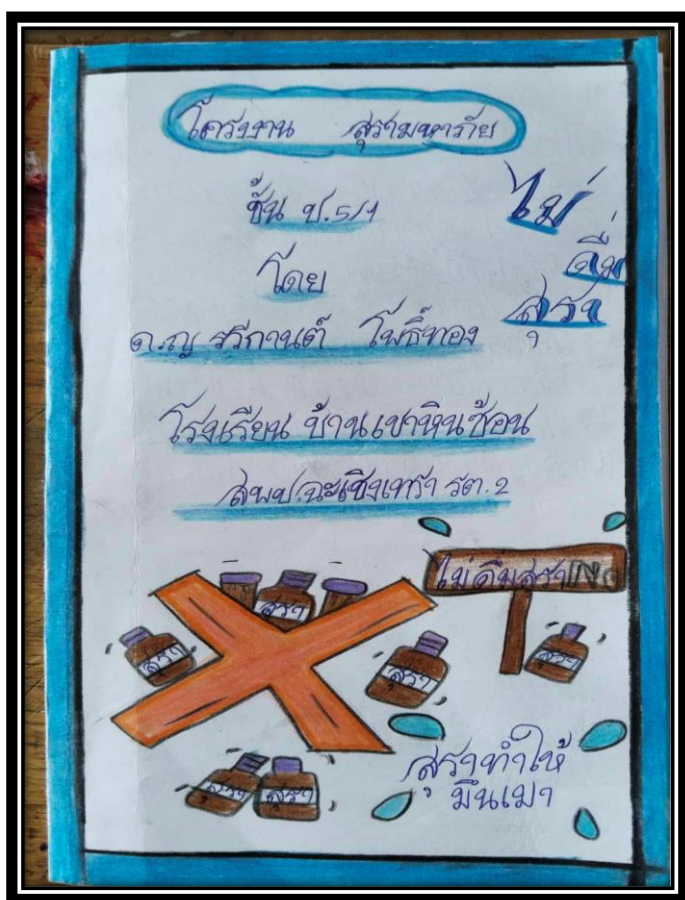 โครงงาน สุรามหาภัย
ชั้น ป.5/1
โดย
ด.ญ รวีกานต์ โพธิ์ทอง
โรงเรียน บ้านเขาหินซ้อน
สพป.ฉะเชิงเทรา รต.2
ไม่
ดื่ม
สุรา
ไม่ดื่มสุรา No
สุรา
สุรา
สุรา
สุรา
สุรา
สุรา
สุราทำให้
มึนเมา